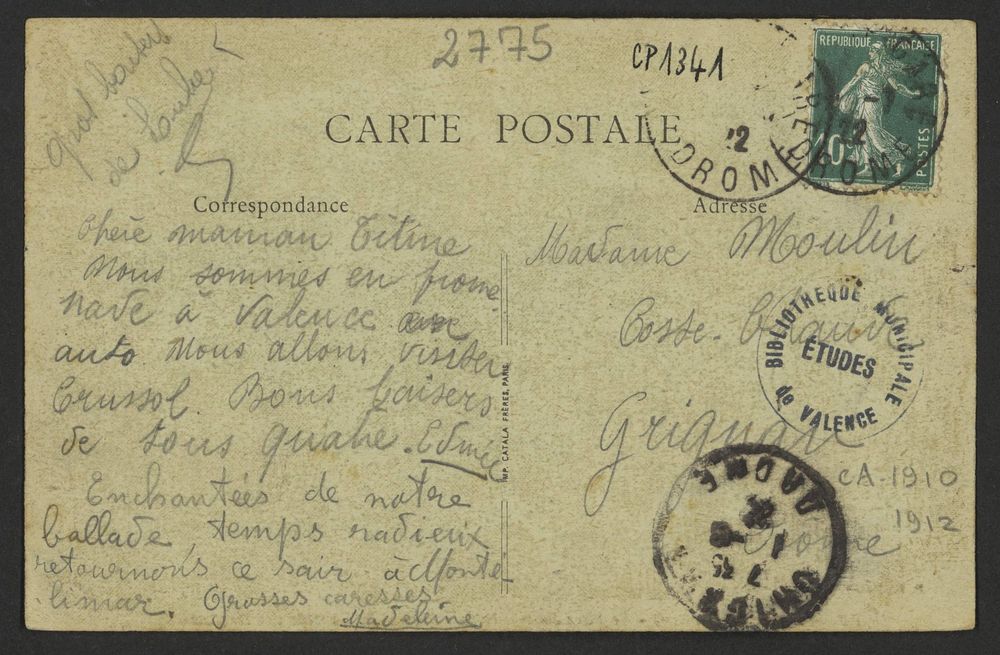 2775
CP1341
REPUBLIQUE FRANCAISE
10c
POSTES
CARTE POSTALE
DROME
12
DROME
12
de Louise
Correspondance
Adresse
Chère maman Titine
Nous sommes en prome
nade à Valence en
auto Nous allons visiter
Crussol Bons baisers
de tous quatre. Edmée
Enchantées de notre
ballade, temps radieux
retournons ce soir à Monté
limar. Grosses caresses
Madeleine
IMP. CATALA FRÈRES, PARIS
Madame Moulin
Coste-
Grignan
Drome
BIBLIOTHEQUE MUNICIPALE
ÉTUDES
de VALENCE
CA-1910
1912
DROME
7 15